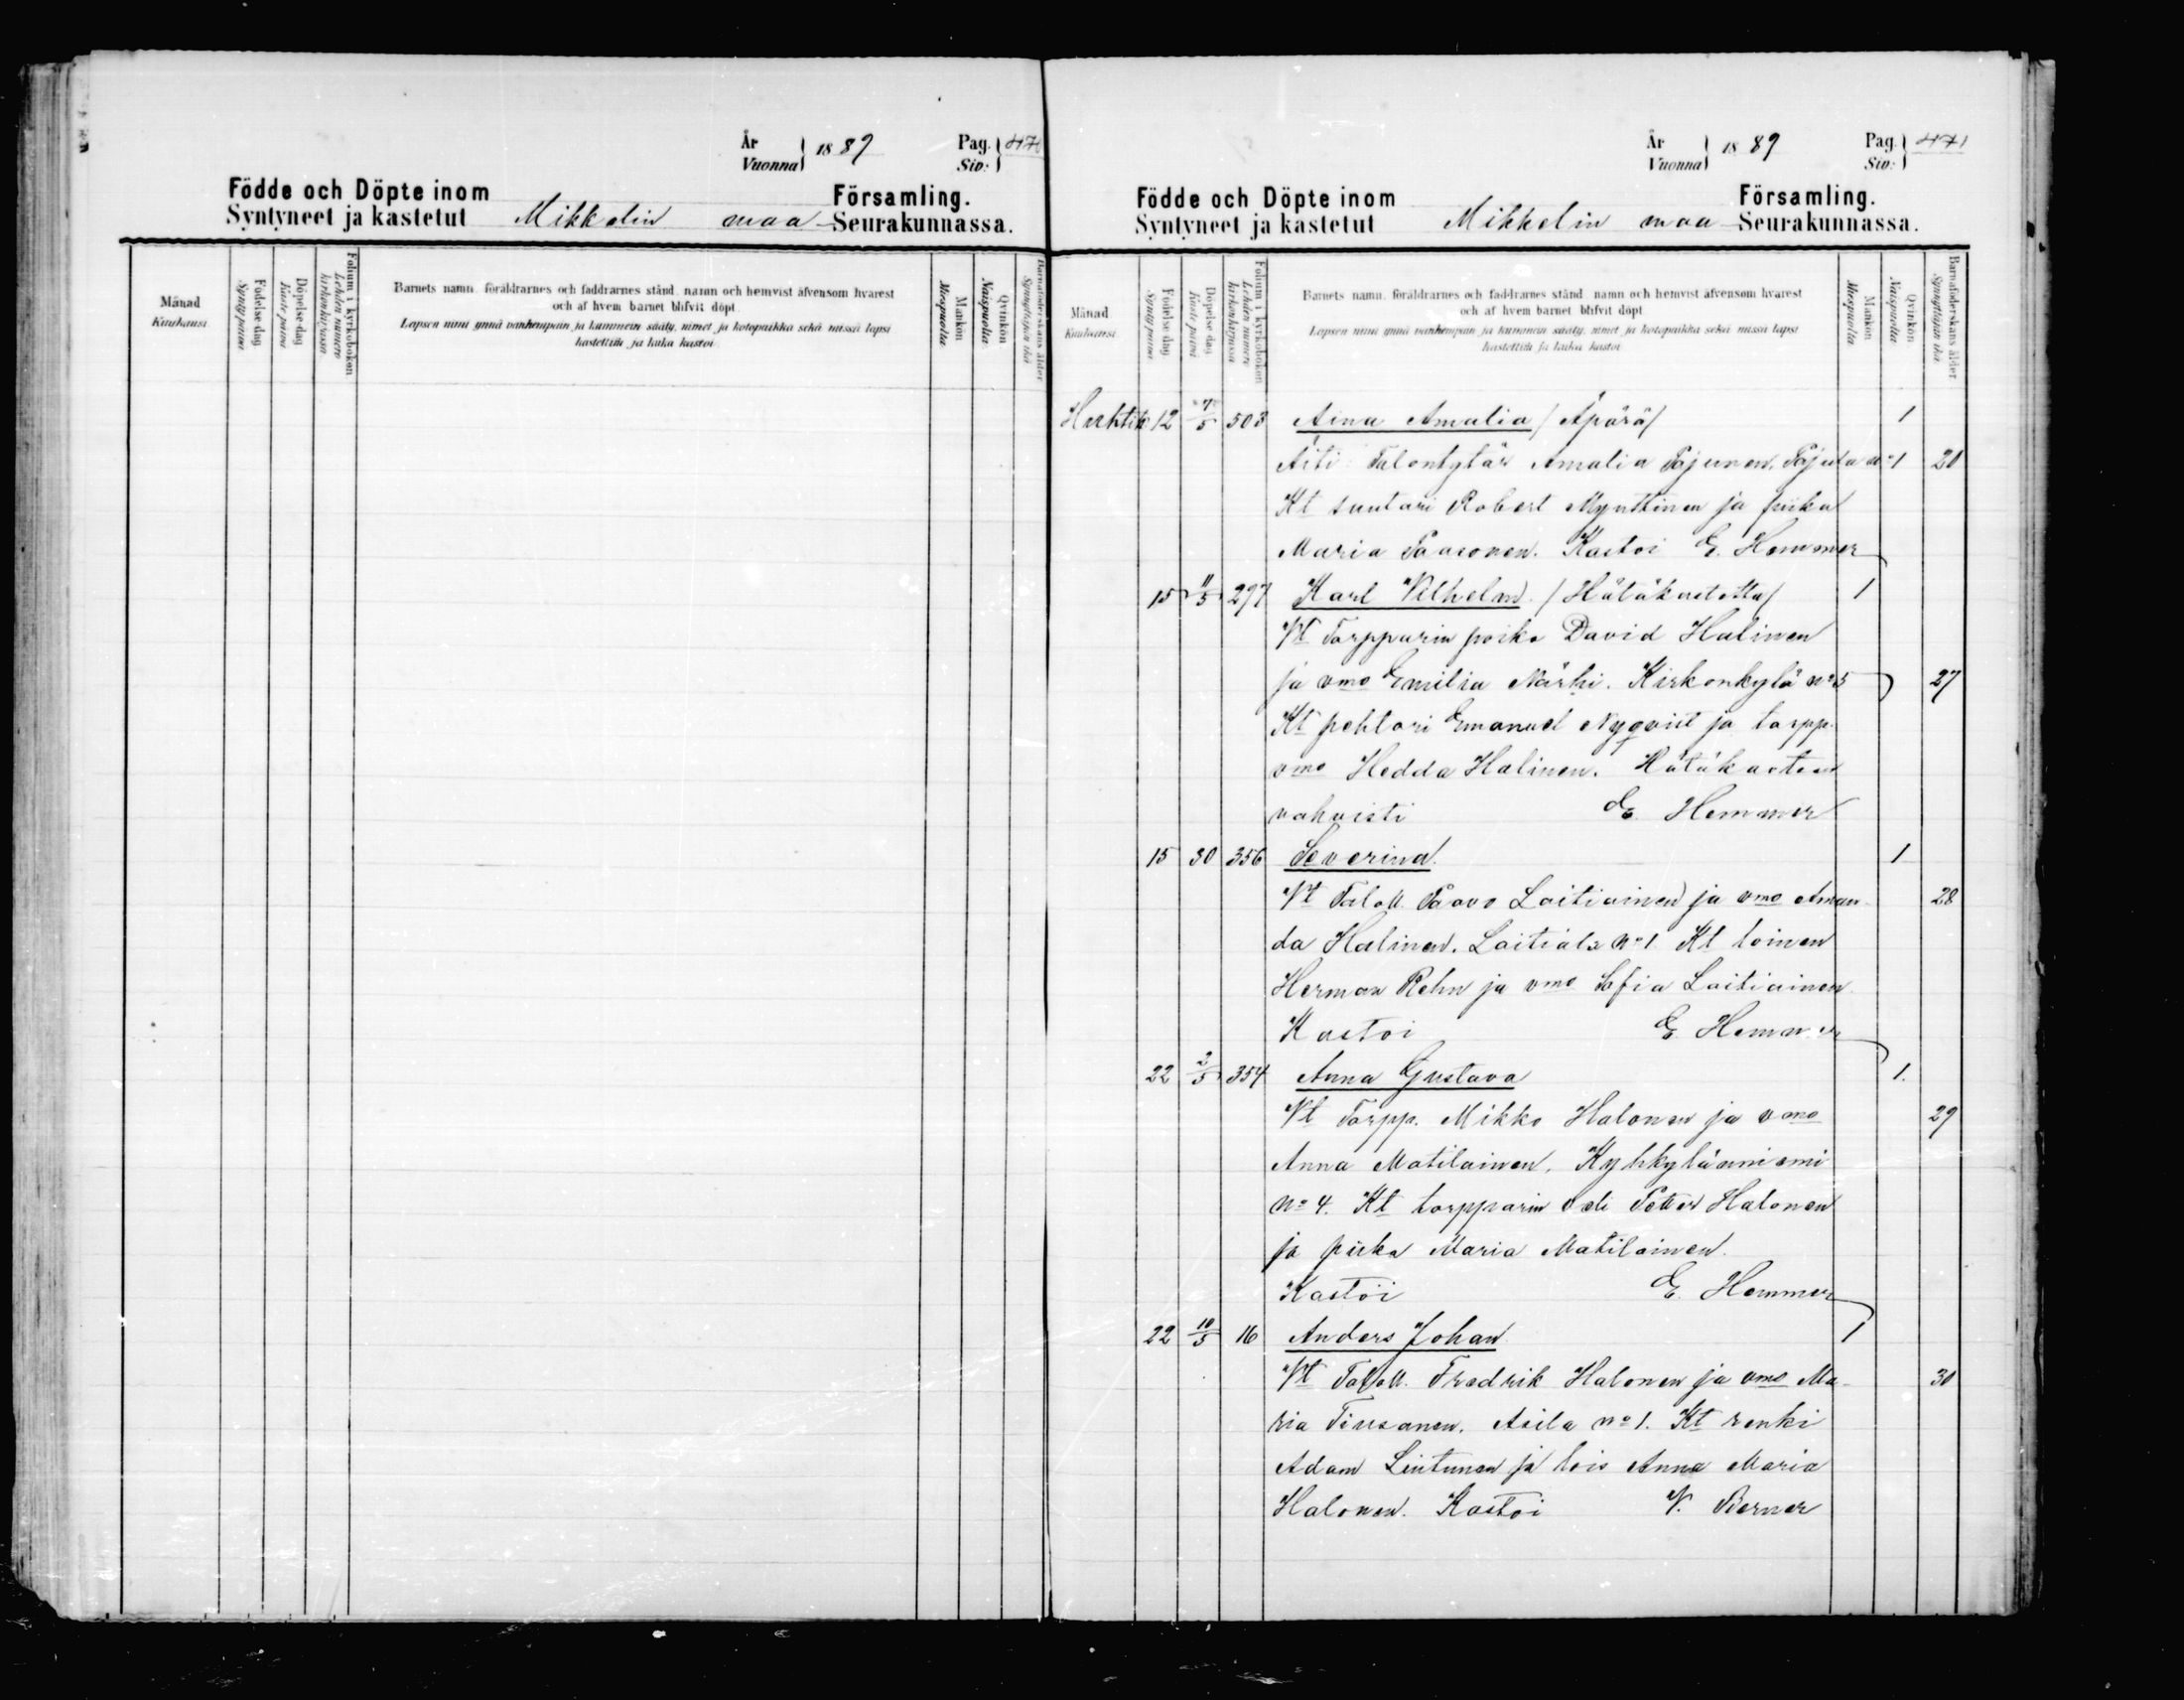 År Vuonna 1889 Pag. Siv: 470
Födde och Döpte inom Församling.
Syntyneet ja kastetut Mikkelin maa-Seurakunnassa.
Månad Kuukausi
Födelse dag Syntymä päivä
Döpelse dag Kaste päivä
Folium i kyrkoboken Lehden numero kirkonkirjassa
Barnets namn, föräldrarnes och faddrarnes stånd, namn och hemvist äfvensom hvarest
och af hvem barnet blifvit döpt.
Lapsen nimi ynnä vanhempain ja kummein sääty, nimet ja kotopaikka sekä missä lapsi
kastettiin ja kuka kastoi.
Mankön Miespuolia
Qvinkön Naispuolia
Barnaföderskans ålder Synnyttäjän ikä
År Vuonna 1889 Pag. Siv: 471
Födde och Döpte inom Församling.
Syntyneet ja kastetut Mikkelin maa-Seurakunnassa.
Månad Kuukausi
Födelse dag Synty päivä
Döpelse dag Kaste päivä
Folium i kyrkoboken Lehden numero kirkonkirjassa
Barnets namn, föräldrarnes och faddrarnes stånd, namn och hemvist äfvensom hvarest
och af hvem barnet blifvit döpt.
Lapsen nimi ynnä vanhempain ja kummein sääty, nimet ja kotopaikka sekä missä lapsi
kastettiin ja kuka kastoi.
Mankön Miespuolia
Qvinkön Naispuolia
Barnaföderskans ålder Synnyttäjän ikä
Huhtik 12 7/5 503 Aina Amalia /Äpärä/ 1
Äiti Talontytär Amalia Pajunen, Pajula no 1 20
Kt suutari Robert Mynttinen ja piika
Maria Paasonen. Kastoi E. Hemmer
15 11/5 297 Karl Vilhelm /Hätäkastettu/ 1
Vt Torpparin poika David Halinen
ja vmo Emilia Närhi. Kirkonkylä no 5 27
Kt pehtori Emanuel Nyqvist ja torpp.
vmo Hedda Halinen. Hätäkasteen
vahvisti E. Hemmer
15 30 356 Severina 1
Vt Taloll. Paavo Laitiainen ja vmo Aman- 28
da Halinen. Laitiala no 1. Kt loinen
Herman Rehn ja vmo Sofia Laitiainen
Kastoi E. Hemmer
22 2/5 354 Anna Gustava 1.
Vt Torpp. Mikko Halonen ja vmo 29
Anna Matilainen. Kyhkylänniemi
no 4. Kt torpparin veli Petter Halonen
ja piika Maria Matilainen.
Kastoi E. Hemmer
22 10/5 16 Anders Johan 1
Vt Taloll. Fredrik Halonen ja vmo Ma- 30
ria Tiusanen. Asila no 1. Kt renki
Adam Lintunen ja lois Anna Maria
Halonen. Kastoi V. Berner